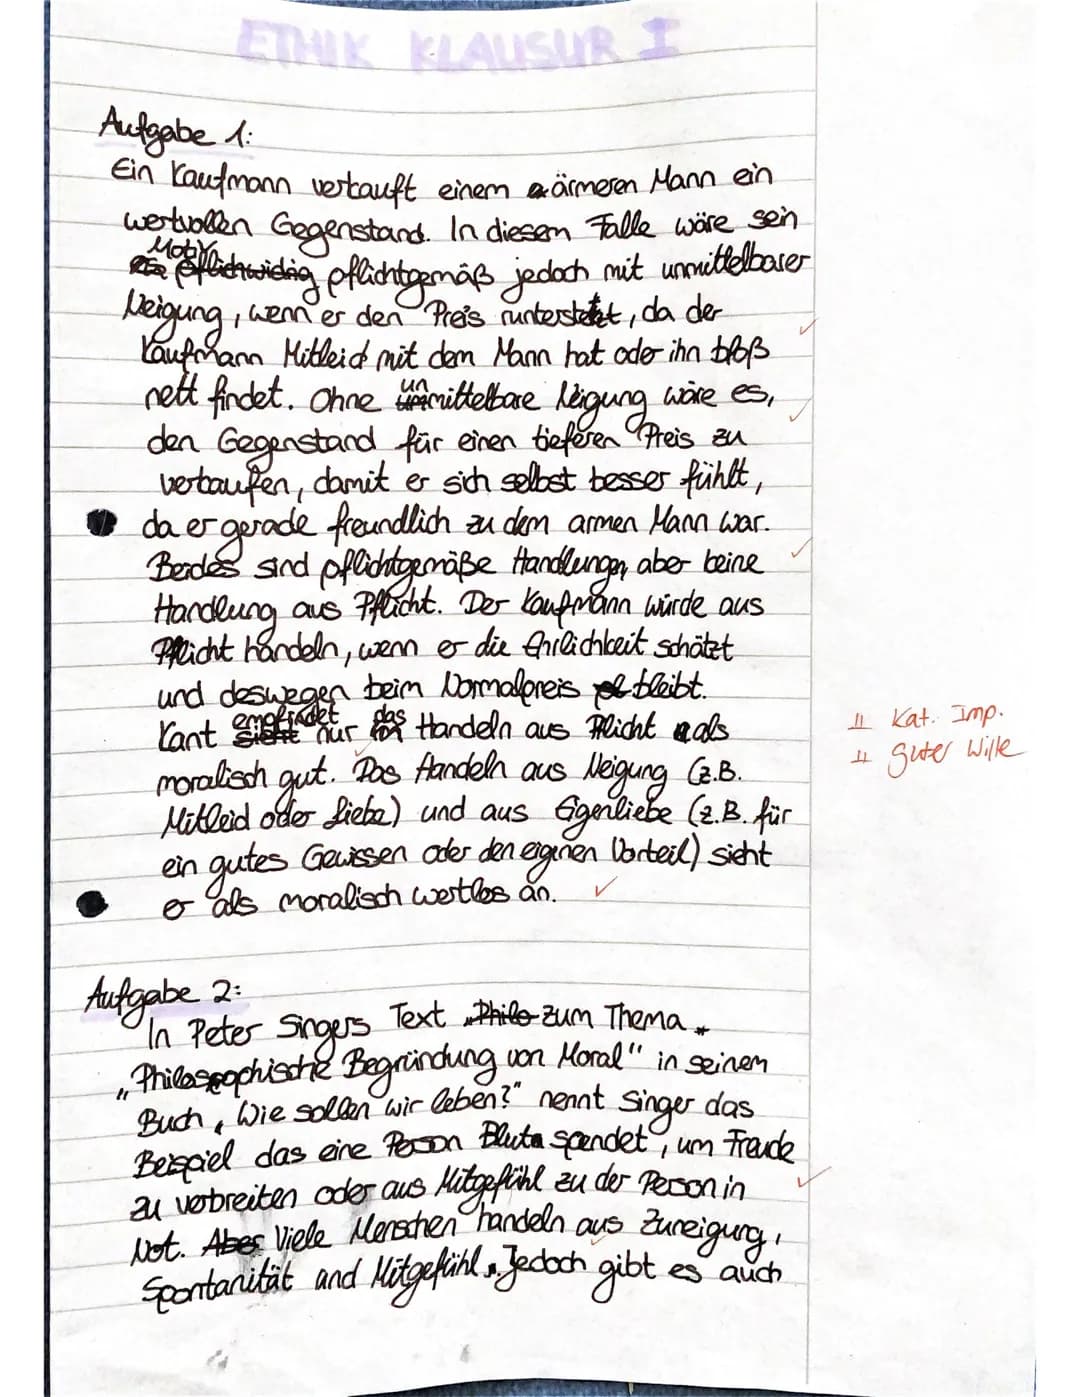 ETHIK KLAUSUR I
Aufgabe 1:
Ein Kaufmann verkauft einem ärmeren Mann ein
wertvollen Gegenstand. In diesem Falle wäre sein
Motiv
pflichwidrig pflichtgemäß jedoch mit unmittelbarer
Neigung, wenn er den Preis runtersetzt, da der
Kaufmann Mitleid mit dem Mann hat oder ihn bloß
nett findet. Ohne unmittelbare Neigung wäre es,
den Gegenstand für einen tieferen Preis zu
verkaufen, damit er sich selbst besser fühlt,
da er gerade freundlich zu dem armen Mann war.
Beides sind pflichtgemäße Handlungen, aber keine
Handlung aus Pflicht. Der Kaufmann würde aus
Pflicht handeln, wenn er die Ehrlichkeit schätzt
und deswegen beim Normalpreis bleibt.
empfindet das
Kant sieht nur Handeln aus Pflicht als
moralisch gut. Das Handeln aus Neigung (z.B.
Mitleid oder Liebe) und aus Eigenliebe (z.B. für
ein gutes Gewissen oder den eigenen Vorteil) sieht
er als moralisch wertlos an.
Kat. Imp.
guter Wille
Aufgabe 2:
In Peter Singers Text Philo zum Thema
„Philosophische Begründung von Moral" in seinem
Buch „Wie sollen wir leben?" nennt Singer das
Beispiel das eine Person Bluta spendet, um Freude
zu verbreiten oder aus Mitgefühl zu der Person in
Not. Aber Viele Menschen handeln aus Zuneigung,
Spontanität and Mitgefühl. Jedoch gibt es auch